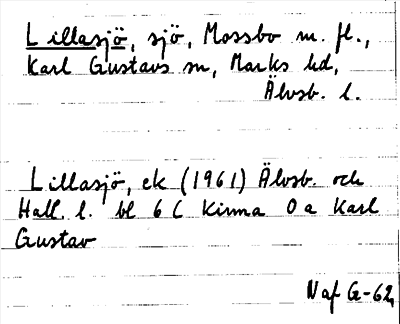 Lillasjö, sjö, Mossbo m. fl.,
Karl Gustavs sn, Marks hd,
Älvsb. l.
Lillasjö, ek (1961) Älvsb. och
Hall. l. bl 6 C Kinna 0 a Karl
Gustav
Naf G-62